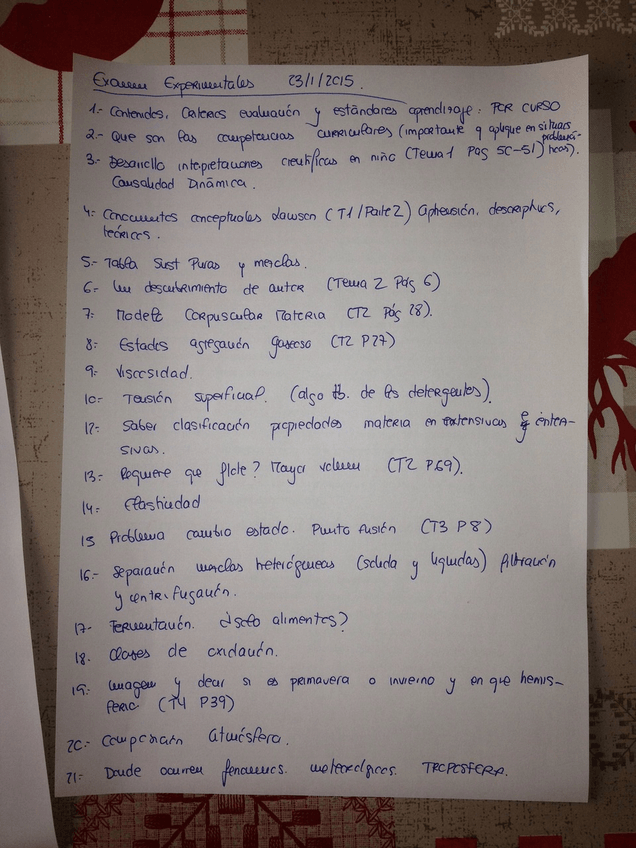 Examen Experimentales 23/1/2015.
1.- Contenidos, Criterios evaluación y estándares aprendizaje: POR CURSO
2.- Que son las competencias curriculares (importante q aplique en situac.
problemá-
ticas).
3.- Desarrollo interpretaciones científicas en niño (Tema 1 Pág 50-51)
Causalidad Dinámica.
4.- Conocimientos conceptuales Lawson (T1/Parte 2) Aprehensión, descriptivos,
teóricos.
5.- Tabla Sust Puras y mezclas.
6.- Un descubrimiento de autor (Tema 2 Pág 6)
7.- Modelo Corpuscular Materia (T2 Pág 28).
8.- Estados agregación gaseoso (T2 P27)
9.- Viscosidad.
10.- Tensión superficial. (algo tb. de los detergentes).
12.- Saber clasificación propiedades materia en extensivas e inten-
sivas.
13.- Requiere que flote? Mayor volumen (T2 P69).
14.- Elasticidad
15 Problema cambio estado. Punto fusión (T3 P8)
16.- Separación mezclas heterógeneas (solida y liquidas) filtración
y centrifugación.
17- Fermentación. ¿solo alimentos?
18. Clases de oxidación.
19.- Imagen y decir si es primavera o invierno y en que hemis-
ferio (T4 P39)
20.- Composición atmósfera.
21.- Donde ocurren fenómenos meteorológicos. TROPOSFERA.